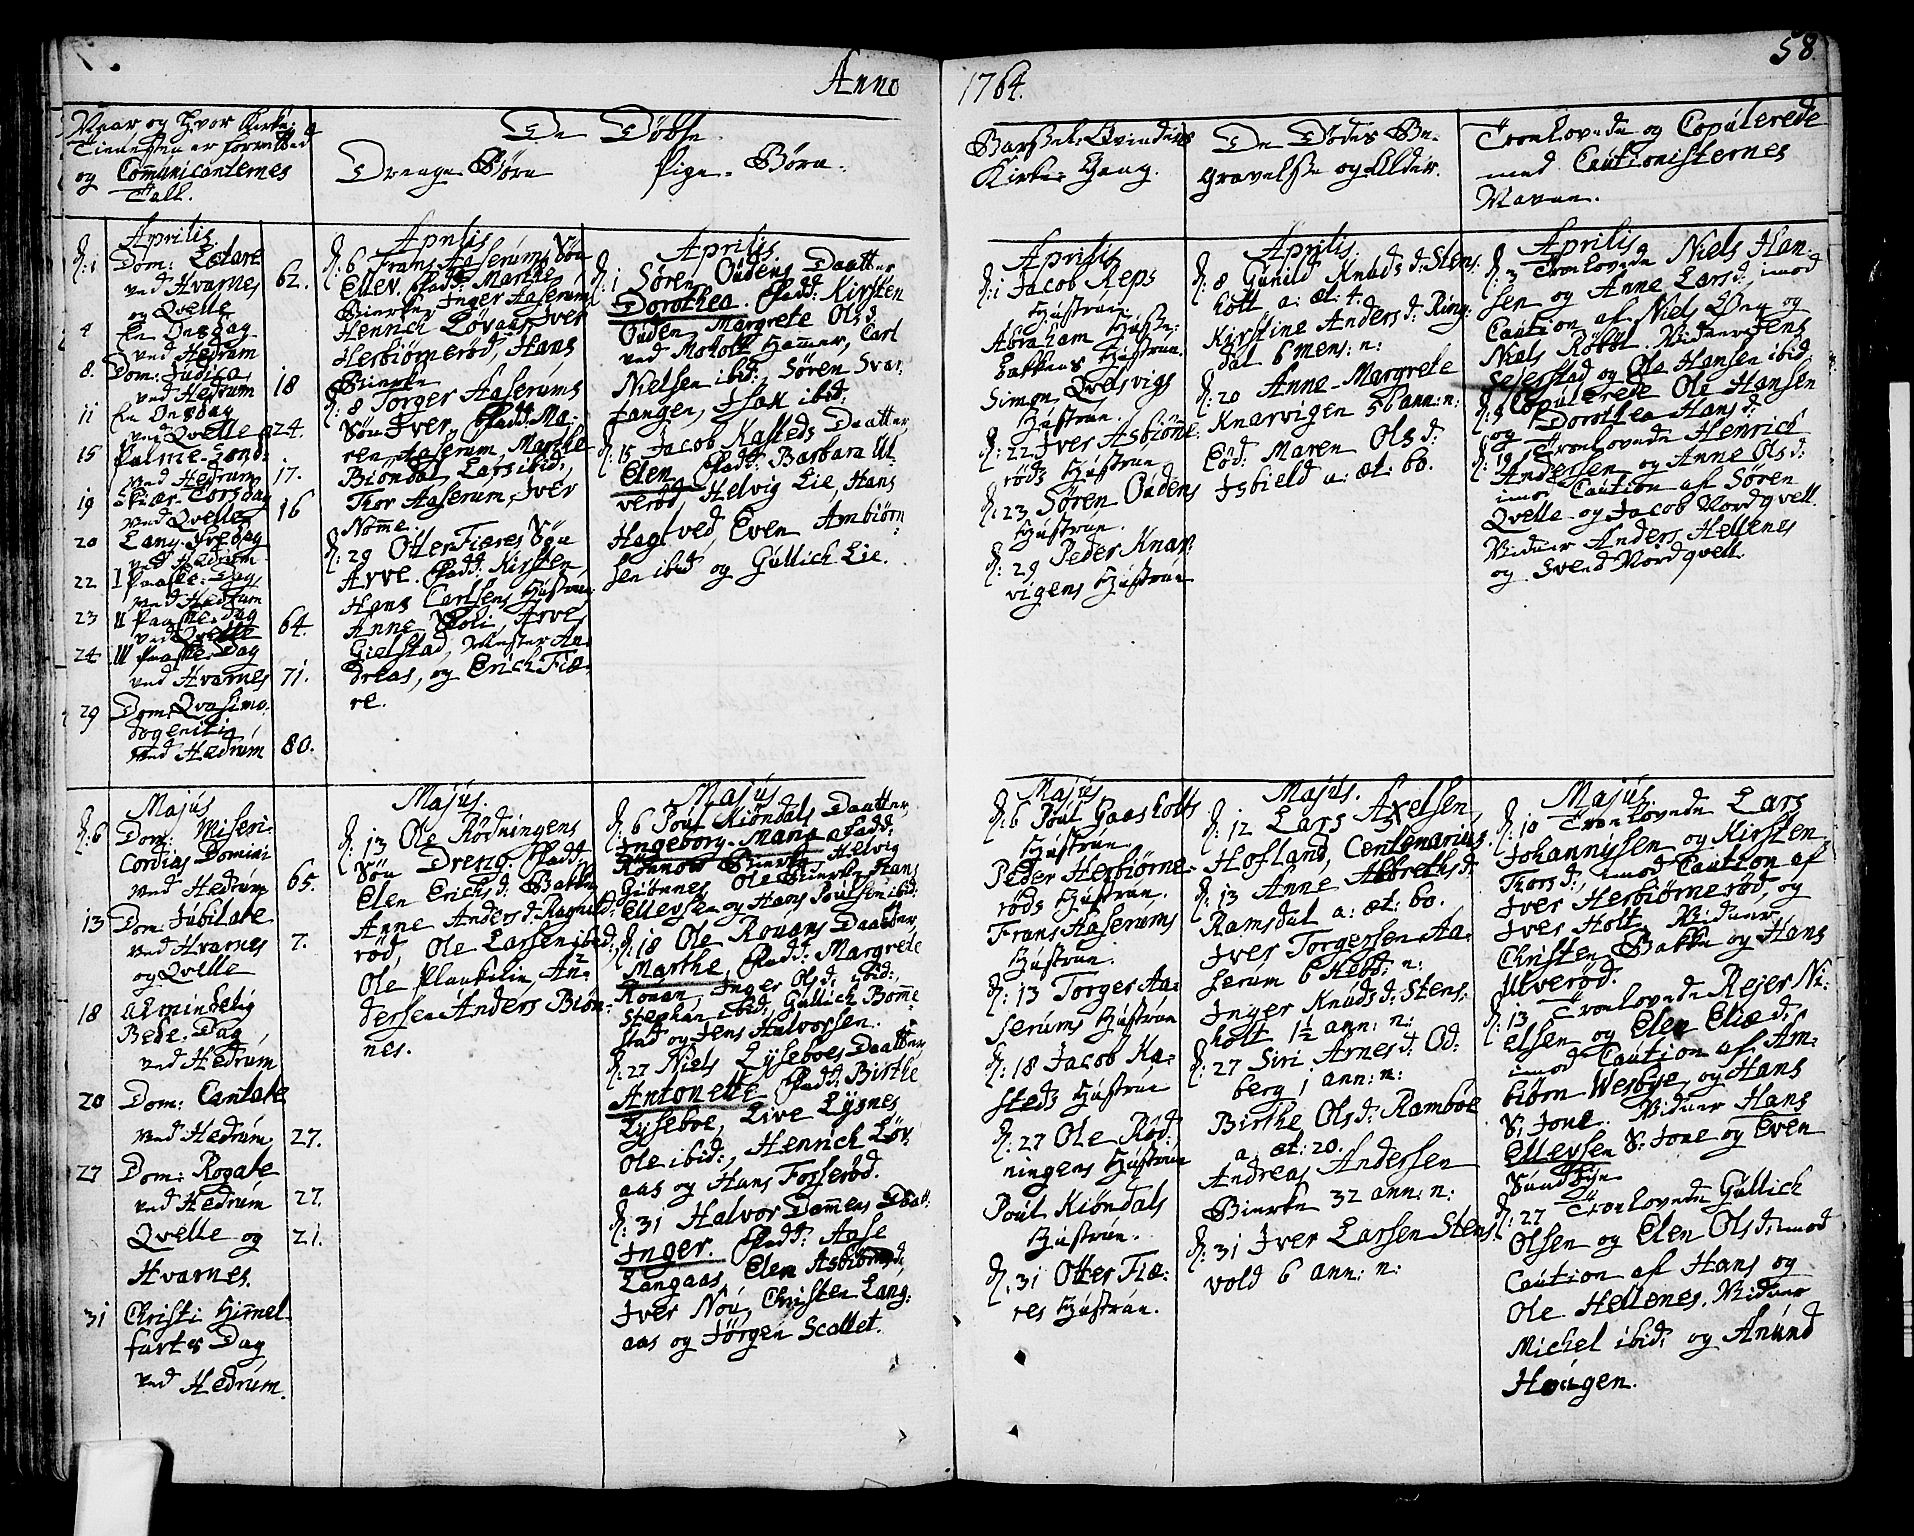 Anno 1764.
58.
Naar og hvor Kirke-
Tienesten er forretted
og Communicanternes
Tall.
De Döbte
Drenge-Börn
Pige-Börn.
Barsel-Qvinders
Kirke-Gang.
De Dödes Be-
gravelse og Alder.
Trolovede og Copulerede
med Cautionisternes
Navne.
Aprilis
d: 1 Dom: Lætare
ved Hvarnes 62.
og Qvelle
4 En Onsdag
ved Hedrum
8. Dom: Judica,
ved Hedrum 18
11 En Onsdag
ved Qvelle 24.
15 Palme-Sønd:
ved Hedrum 17.
19 Skiær-Torsdag
ved Qvelle 16
20 Lang-Fredag
ved Hedrum
22 I Paaske-Dag,
ved Hedrum
23 II Paaske-Dag
ved Qvelle 64.
24 III Paaske-Dag
ved Hvarnes 71.
29 Dom: Qvasimo-
dogeniti,
ved Hedrum 80.
Aprilis
d: 6 Frans Aaserums Søn
Ellev. Fadd: Marthe
Bierke, Inger Aaserum
Henrich Løvaas, Iver
Herbiørnerød, Hans
Bierke
d: 8 Torger Aaserums
Søn Iver, Fadd: Ma-
ren Aaserum, Marthe
Biøndal, Lars ibid:,
Thor Aaserum, Iver
Nomme.
d: 29 Otter Fiæres Søn
Arve. Fadd: Kirsten,
Hans Carlsens Hustrue,
Anne Foli, Arve
Gielstad, Mester An-
dreas, og Erich Fiæ-
re.
Aprilis
d: 1 Søren Oudens Daatter
Dorothea. Fadd: Kirsten
Ouden, Margrete Ols d:
ved Moholt Hammer, Carl
Nielsen ibid: Søren Svar-
tangen, Isak ibid:
d: 15 Jacob Kasteds Daatter
Elen. Fadd: Barbara Ut-
verød, Helvig Lie, Hans
Hagtved, Even Ambiørn-
sen ibid og Gullich Lie.
Aprilis
d: 1 Jacob Reps
Hustrue
Abraham
bakkens Hustrue.
Simon Qvelsvigs
Hustrue.
d: 22 Iver Asbiørne-
røds Hustrue
d: 23 Søren Oudens
Hustrue.
d: 29 Peder Knar-
vigens Hustrue
Aprilis
d: 8 Gunild Knuds d: Stens-
holt a: æt: 4.
Kirstine Anders d: Ring-
dal 6 mens: n:
d: 20 Anne-Margrete
Knarvigen 56 ann: n:
Eod: Maren Ols d:
Isbield a: æt: 60.
Aprilis
d: 3 Trolovede Niels Han-
sen og Anne Lars d:, imod
Caution af Niels Øen og
Niels Røbøl. Vidner Jens
Seierstad og Ole Hansen ibid
d: 5 Copulerede Ole Hansen
og Dorothea Hans d:
d: 19 Trolovede Henrich
Andersen og Anne Ols d:
imod Caution af Søren
Qvelle og Jacob Nordqvell
Vidner Anders Hellenes
og Svend Nordqvell.
Majus
d: 6 Dom: Miseri-
cordias Domini
ved Hedrum 65.
13 Dom: Jubilate
ved Hvarnes 7.
og Qvelle
18 Almindelig
Bede-Dag
ved Hedrum
20 Dom: Cantate
ved Hedrum, 27.
27 Dom: Rogate
ved Hedrum 27.
Qvelle og 21.
Hvarnes.
31 Christi Himmel-
farts Dag
ved Hedrum.
Majus.
d: 13 Ole Rødningens
Søn Dreng. Fadd:
Elen Erichs d: Bakke,
Anne Anders d: Ragnild-
rød, Ole Larsen ibid,
Ole Plankelie, An-
dersen Anders Biøn-
nes.
Majus
d: 6 Poul Kiøndals Daatter,
Ingeborg-Maria Fadd:
Rønnow Bierke, Helvig
Giønnes, Ole Bierke, Hans
Ellevsen og Hans Poulsen ibid:
d: 18 Ole Rouans Daatter,
Marthe, Fadd: Margrete
Rouan, Inger Ols d: ibid:,
Stephan ibid: Gullich Bomme-
stad og Jens Halvorsen.
d: 27 Niels Lyseboes Daatter
Antonette Fadd: Birthe
Lyseboe, Live Lysnes
Ole ibid:, Henrich Løv-
aas og Hans Fosserød.
d: 31 Halvor Dammens Daatt:
Inger. Fadd: Aase
Langaas, Elen Asbiørnrød,
Iver Nou, Christen Lang-
aas og Jørgen Scallet.
Majus
d: 6 Poul Gaasholts
Hustrue
Peder Herbiørne-
røds Hustrue.
Frans Aaserums
Hustrue.
d: 13 Torger Aa-
serums Hustrue
d: 18 Jacob Ka-
steds Hustrue
d: 27 Ole Rød-
ningens Hustrue
Poul Kiøndals
Hustrue.
d: 31 Otter Fiæ-
res Hustrue.
Majus.
d: 12 Lars Axelsen
Hofland, Centenarius.
d: 13 Anne Albreths d:
Ramsdal a: æt: 60.
Iver Torgersen Aa-
serum 6 Hebd: n:
Inger Knuds d: Stens-
holt 1½ ann: n:
d: 27 Siri Arnes d: Od-
berg 1 ann: n:
Birthe Ols d: Ramboe
a: æt: 20.
Andreas Andersen
Bierke 32 ann: n:
d: 31 Iver Larsen Stens-
vold 6 ann: n:
Majus
d: 10 Trolovede Lars
Johannissen og Kirsten
Thors d:, imod Caution af
Iver Herbiørnerød, og
Iver Holt. Vidner
Christen Bakke og Hans
Utverød.
d: 13 Trolovede Rejer Ni-
elsen og Elen Eliæ d:
imod Caution af Am-
biørn Wesbye, og Hans
S: Jone. Vidner Hans
Ellevsen S: Jone og Even
Sundbye
d: 27 Trolovede Gullich
Olsen og Elen Ols d: imod
Caution af Hans og
Ole Hellenes. Vidner
Michel ibid: og Anund
Hougen.